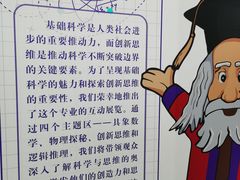 基础科学是人类社会进
步的重要推动力，而创新思
维是推动科学不断突破边界
的关键要素。为了呈现基础
科学的魅力和探索创新思维
的重要性，我们荣幸地推出
了这个专业的互动展览。通
过四个主题区——具象数
学、物理探秘、创新思维和
逻辑推理，我们将带领观众
深入了解科学与思维的奥
发他们的创造力和思